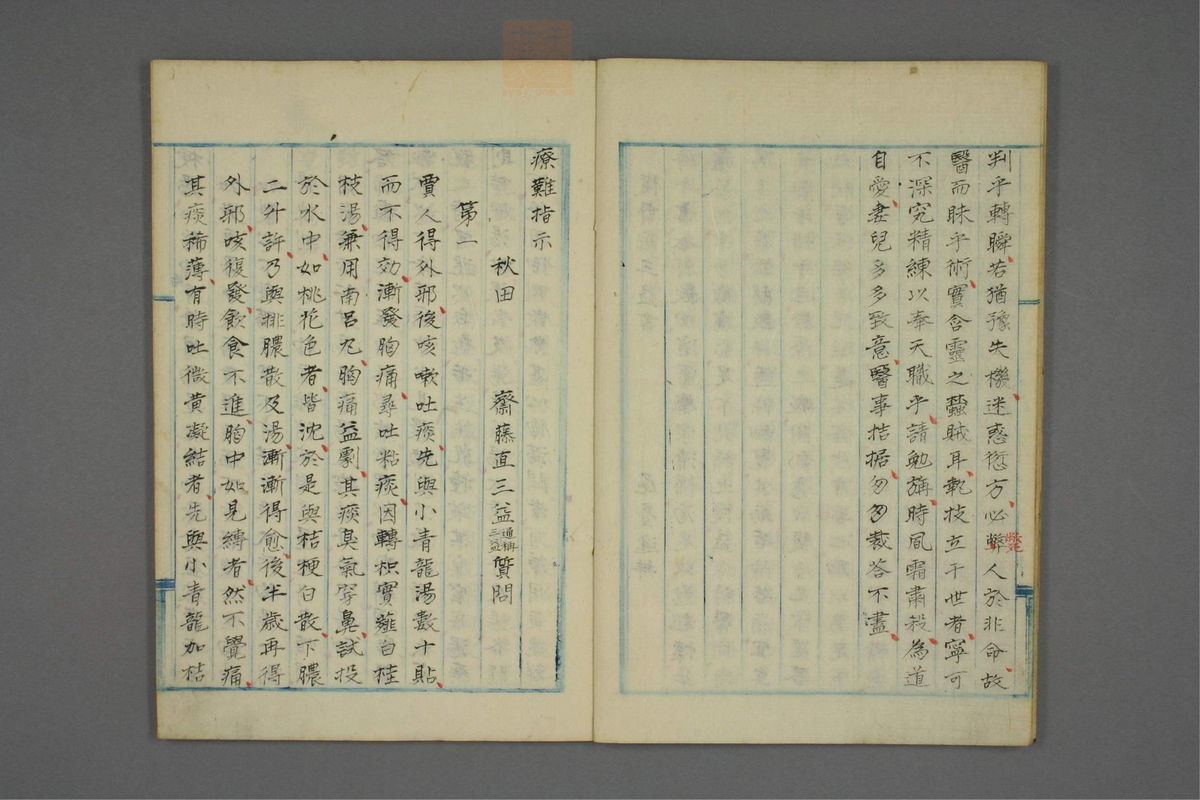 判乎轉瞬若猶豫失機迷惑愆方必斃人於非命故
醫而昧乎術實含靈之蠹賊耳執技立于世者寧可
不深究精練以奉天職乎請勉旃時風霜肅殺為道
自愛妻兒多多致意醫事拮据匆匆裁答不盡
療難指示
秋田　齋藤直三益通稱三益質問
第一
賈人得外邪後咳嗽吐痰先與小青龍湯數十貼
而不得効漸發胸痛尋吐粘痰因轉枳實薤白桂
枝湯兼用南呂丸胸痛益劇其痰臭氣穿鼻試投
於水中如桃花色者皆沈於是與桔梗白散下膿
二升許乃與排膿散及湯漸漸得愈後半歲再得
外邪咳復發飲食不進胸中如見縛者然不覺痛
其痰稀薄有時吐微黄凝結者先與小青龍加桔